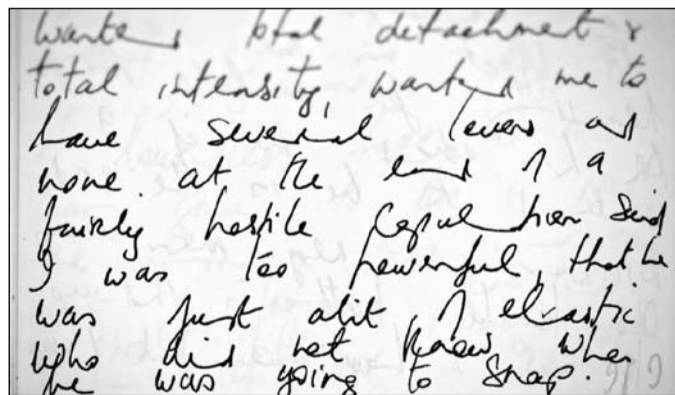 wanted total detachment &
total intensity, wanted me to
have several lovers and
none. at the end of a
fairly hostile copulation said
I was too powerful, that he
was just a bit of elastic
who did not know when
he was going to snap.